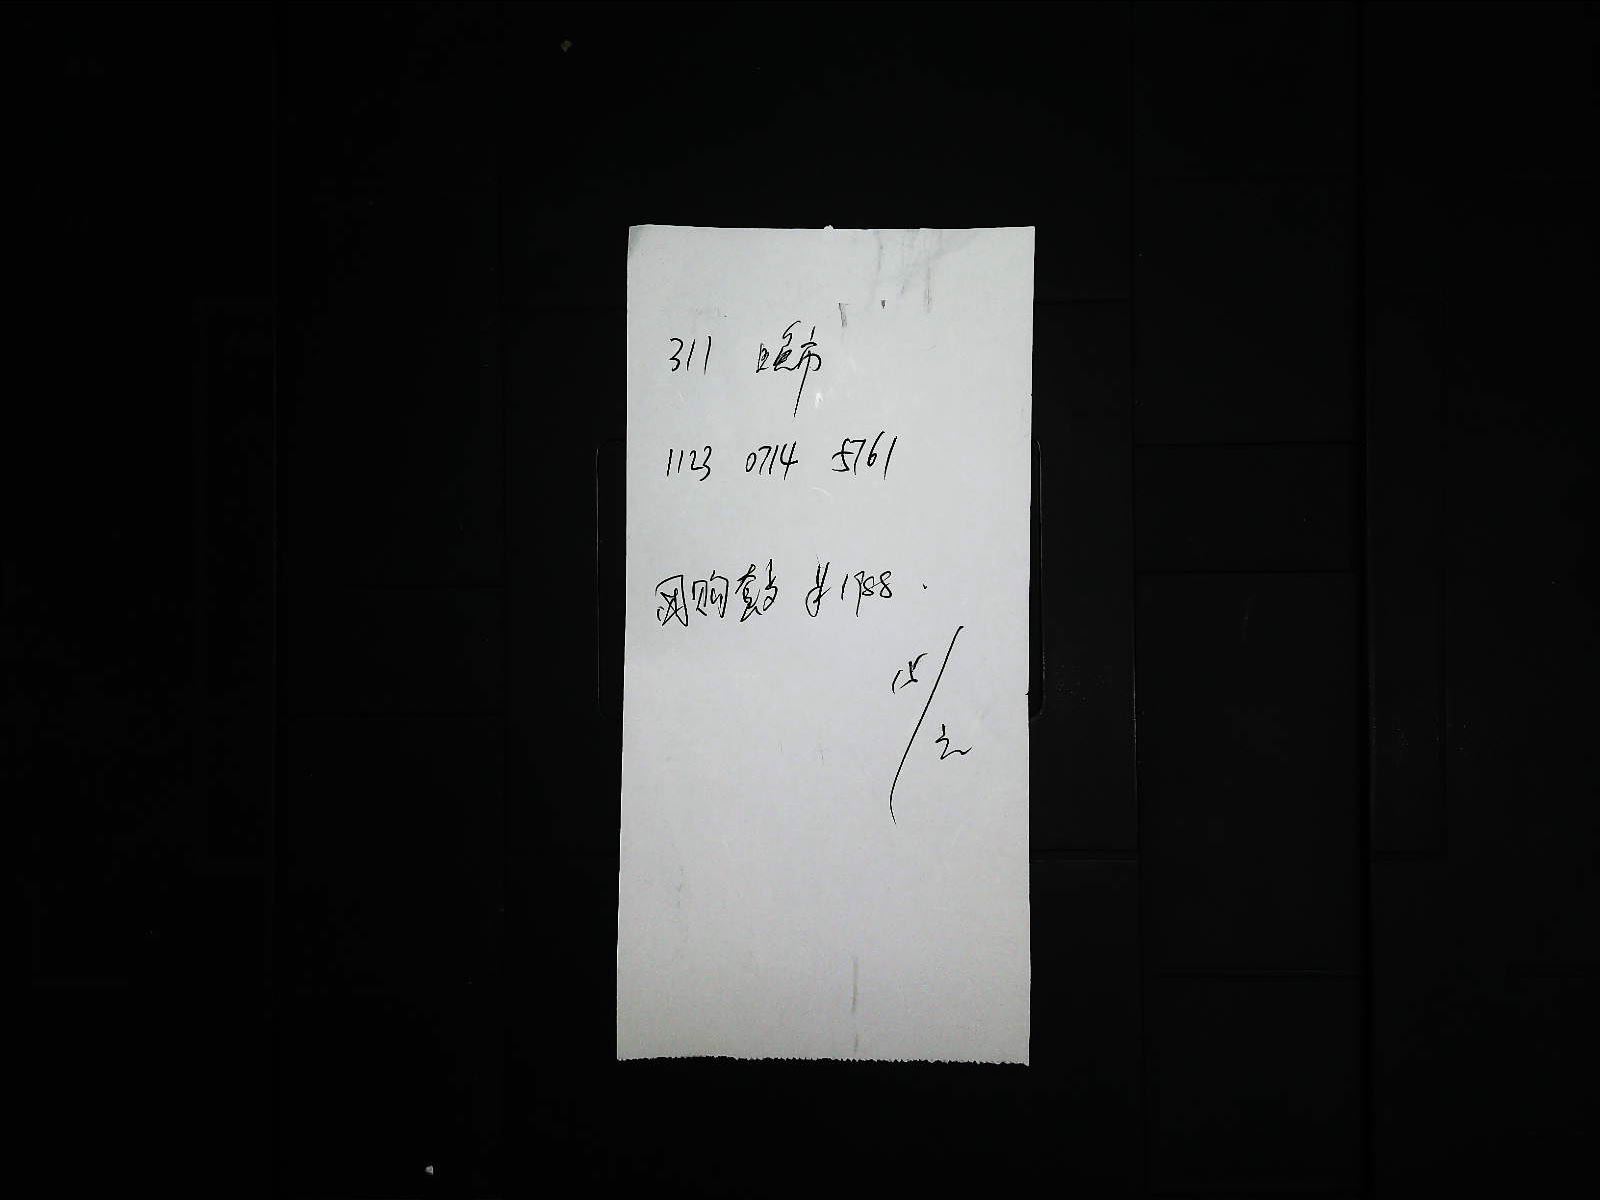 311 晚市
1123 0714 5761
团购套 ¥1988.
15/